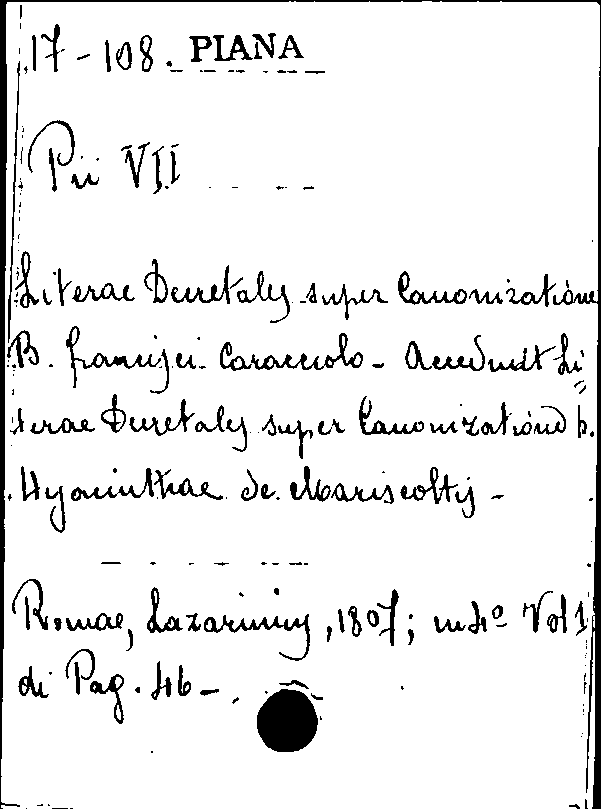 17-108. PIANA
Pii VII
Literae Decretales super Canonizatione
B. Francisci Caracciolo - Accedunt Li
terae Decretales super Canonizatione b.
Hyacinthae de Mariscottis -
Romae, Lazarinius, 1807; in 4º Vol 1
di Pag. 46 -